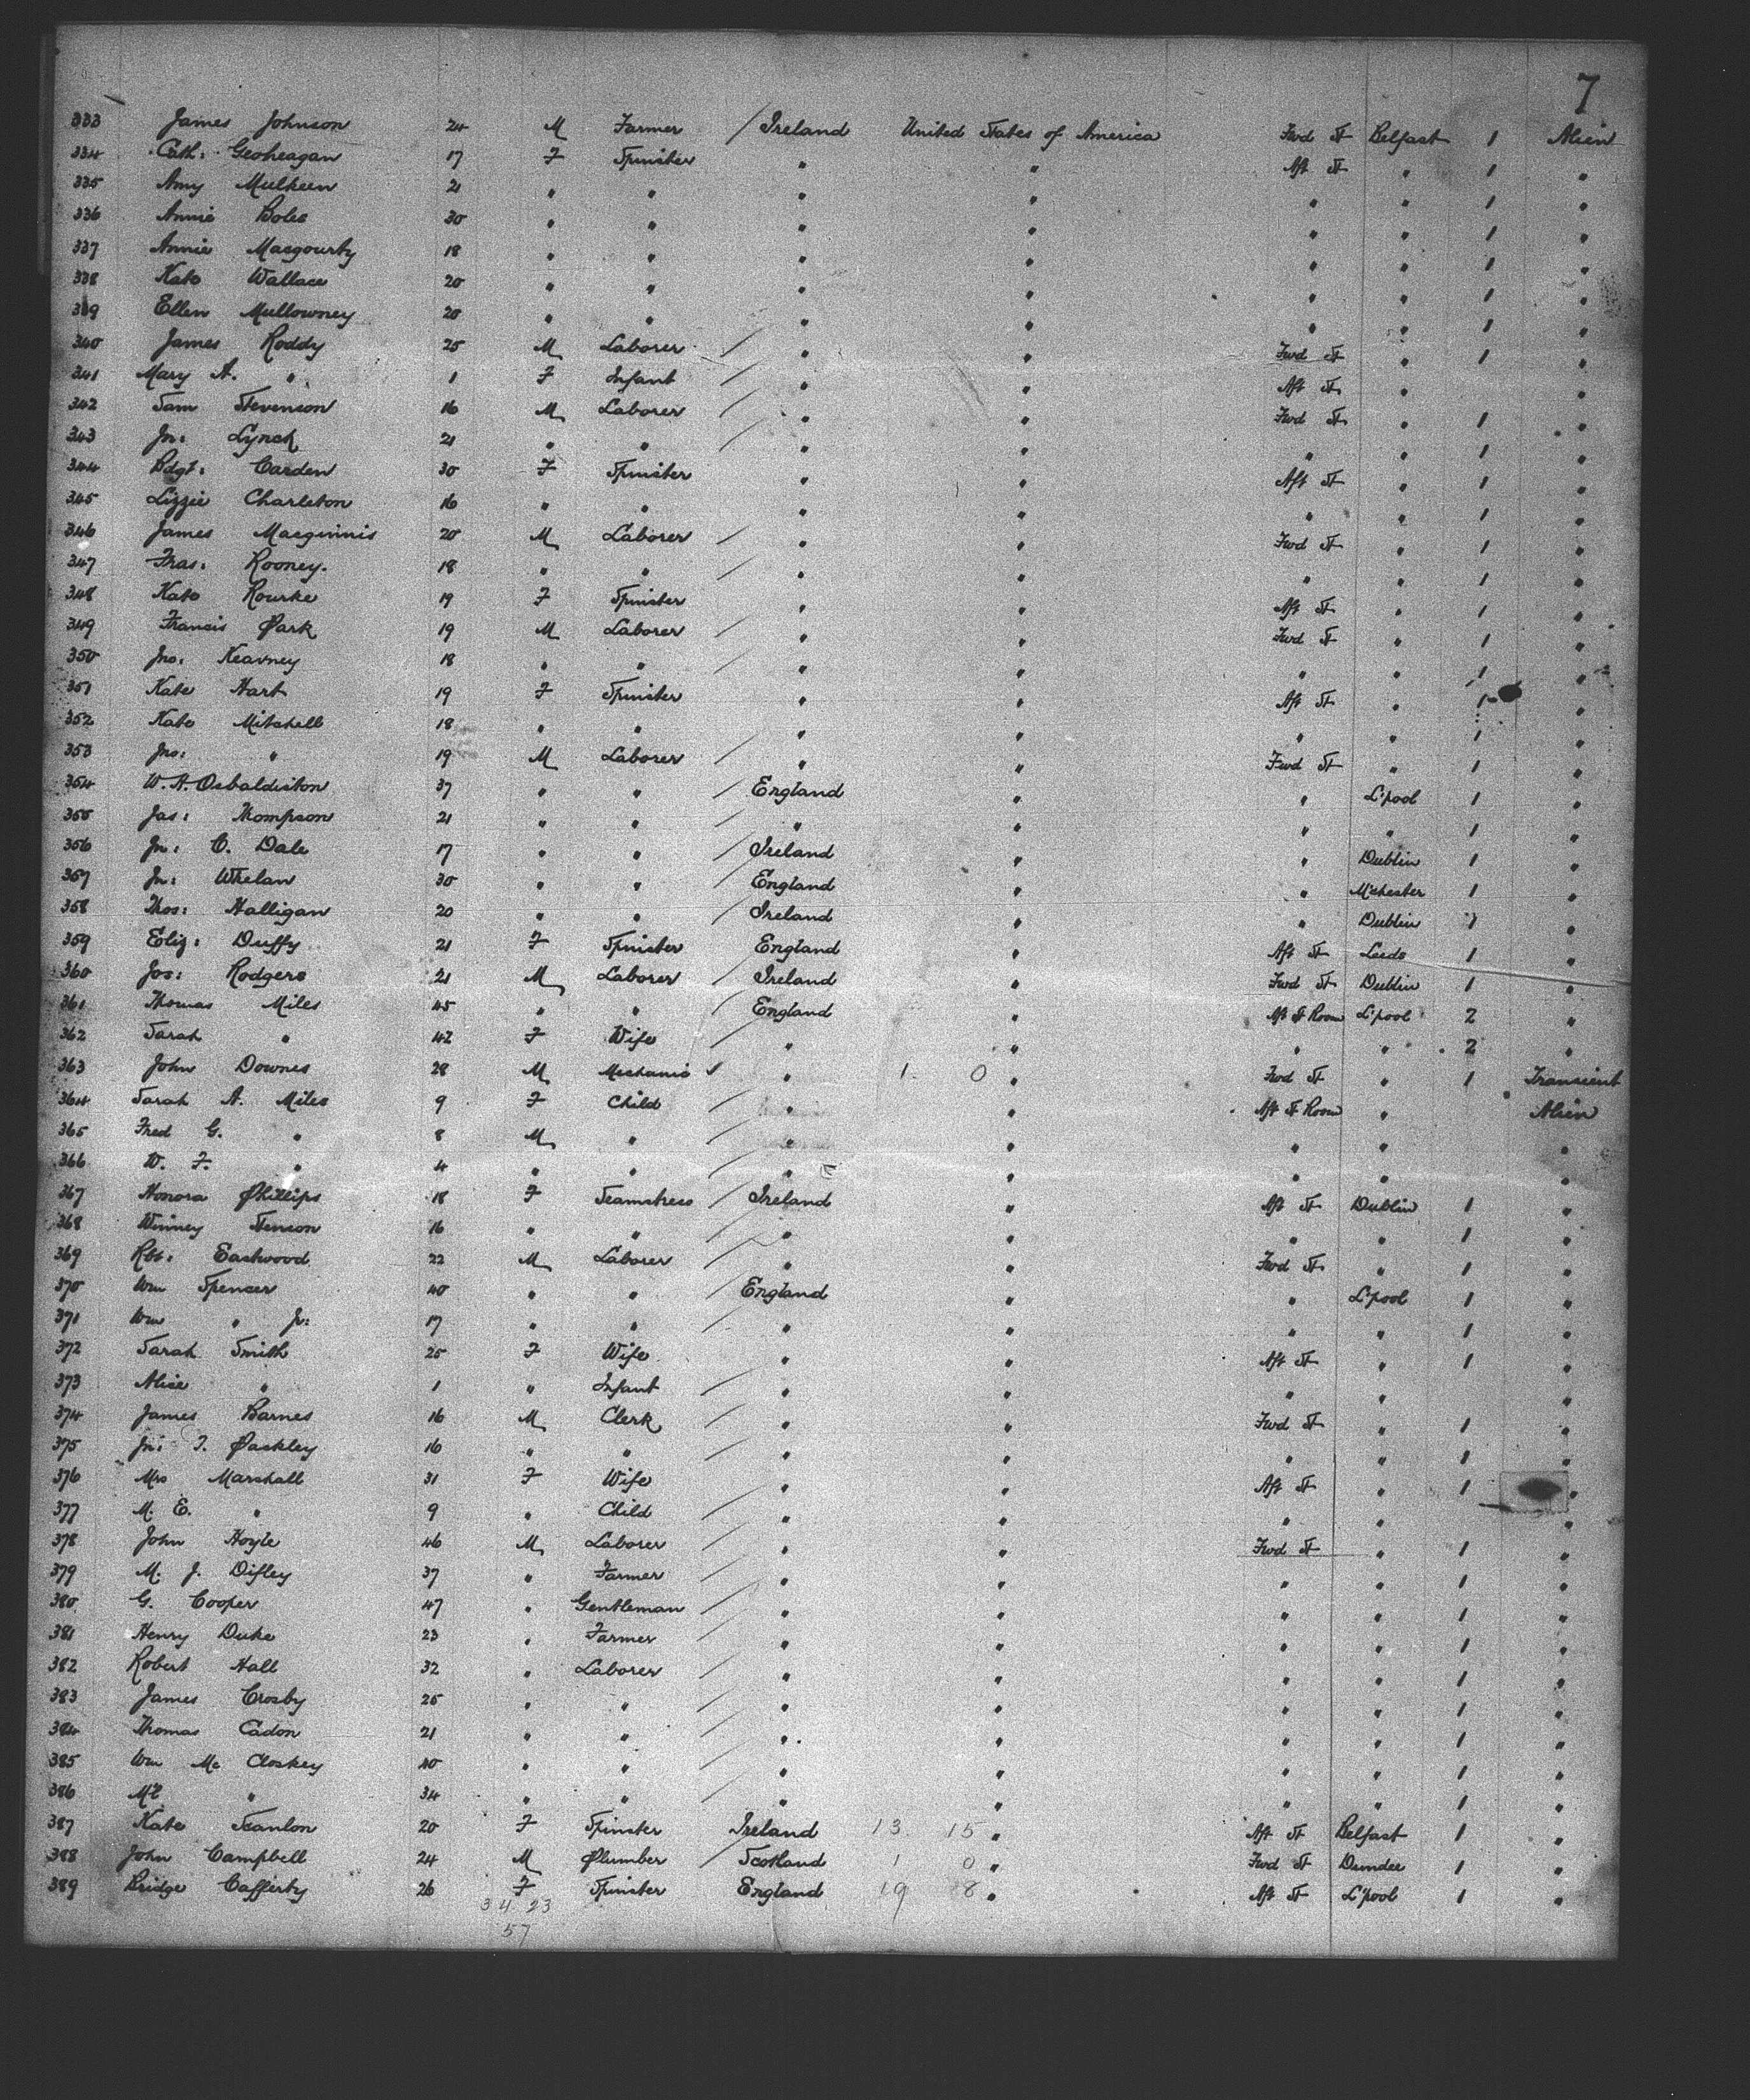 7
333 James Johnson 24 M Farmer / Ireland United States of America Fwd St Belfast 1 Alien
334 Cath: Geoheagan 17 F Spinster " " Aft St " 1 "
335 Amy Mulkeen 21 " " " " " " 1 "
336 Annie Boles 30 " " " " " " 1 "
337 Annie Macgourty 18 " " " " " " 1 "
338 Kate Wallace 20 " " " " " " 1 "
339 Ellen Mullowney 20 " " " " " " 1 "
340 James Roddy 25 M Laborer / " " Fwd St " 1 "
341 Mary A. " 1 F Infant / " " Aft St " "
342 Sam Stevenson 16 M Laborer / " " Fwd St " 1 "
343 Jn: Lynch 21 " " / " " " " 1 "
344 Bdgt: Carden 30 F Spinster " " Aft St " 1 "
345 Lizzie Charleton 16 " " " " " " 1 "
346 James Macginnis 20 M Laborer / " " Fwd St " 1 "
347 Fras: Rooney. 18 " " / " " " " 1 "
348 Kate Rourke 19 F Spinster " " Aft St " 1 "
349 Francis Park 19 M Laborer / " " Fwd St " 1 "
350 Jno: Kearney 18 " " / " " " " 1 "
351 Kate Hart 19 F Spinster " " Aft St " 1 "
352 Kate Mitchell 18 " " / " " " " 1 "
353 Jno: " 19 M Laborer / " " Fwd St " 1 "
354 W. H. Osbaldiston 37 " " / England " " L'pool 1 "
355 Jas: Thompson 21 " " / " " " " 1 "
356 Jn: C. Dale 17 " " / Ireland " " Dublin 1 "
357 Jn: Whelan 30 " " / England " " M'chester 1 "
358 Thos: Halligan 20 " " / Ireland " " Dublin 1 "
359 Eliz: Duffy 21 F Spinster / England " Aft St Leeds 1 "
360 Jos: Rodgers 21 M Laborer / Ireland " Fwd St Dublin 1 "
361 Thomas Miles 45 " " / England " Aft St Room L'pool 2 "
362 Sarah " 42 F Wife / " " " " 2 "
363 John Downes 28 M Mechanic " 1 0 " Fwd St " 1 Transient
364 Sarah A. Miles 9 F Child / " " Aft St Room " Alien
365 Fred G. " 8 M " / " " " " "
366 W. F. " 4 " " / " " " " "
367 Honora Phillips 18 F Seamstress / Ireland " Aft St Dublin 1 "
368 Winney Stenson 16 " " / " " " " 1 "
369 Rbt: Eastwood 22 M Laborer / " " Fwd St " 1 "
370 Wm Spencer 40 " " / England " " L'pool 1 "
371 Wm " Jr: 17 " " / " " " " 1 "
372 Sarah Smith 25 F Wife / " " Aft St " 1 "
373 Alice " 1 " Infant / " " " " "
374 James Barnes 16 M Clerk / " " Fwd St " 1 "
375 Jn: T. Packley 16 " " / " " " " 1 "
376 Mrs Marshall 31 F Wife / " " Aft St " 1 "
377 M. E. " 9 " Child / " " " " "
378 John Hoyle 46 M Laborer / " " Fwd St " 1 "
379 M. J. Difley 37 " Farmer / " " " " 1 "
380 G. Cooper 47 " Gentleman / " " " " 1 "
381 Henry Duke 23 " Farmer / " " " " 1 "
382 Robert Hall 32 " Laborer / " " " " 1 "
383 James Crosby 25 " " / " " " " 1 "
384 Thomas Cadon 21 " " / " " " " 1 "
385 Wm Mc Closkey 40 " " / " " " " 1 "
386 Ml " 34 " " / " " " " 1 "
387 Kate Scanlon 20 F Spinster Ireland 13 15 " Aft St Belfast 1 "
388 John Campbell 24 M Plumber / Scotland 1 0 " Fwd St Dundee 1 "
389 Bridge Cafferty 26 F Spinster England 19 8 " Aft St L'pool 1 "
34 23
57